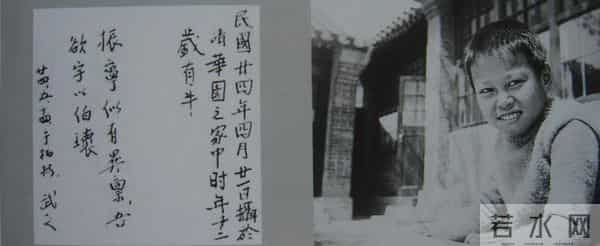 民國廿四年四月廿一日攝於
清華園之家中時年十二
歲有半
振寧似有異稟吾
欲字以伯瓌
廿四、五、于柏林．武之
若水网